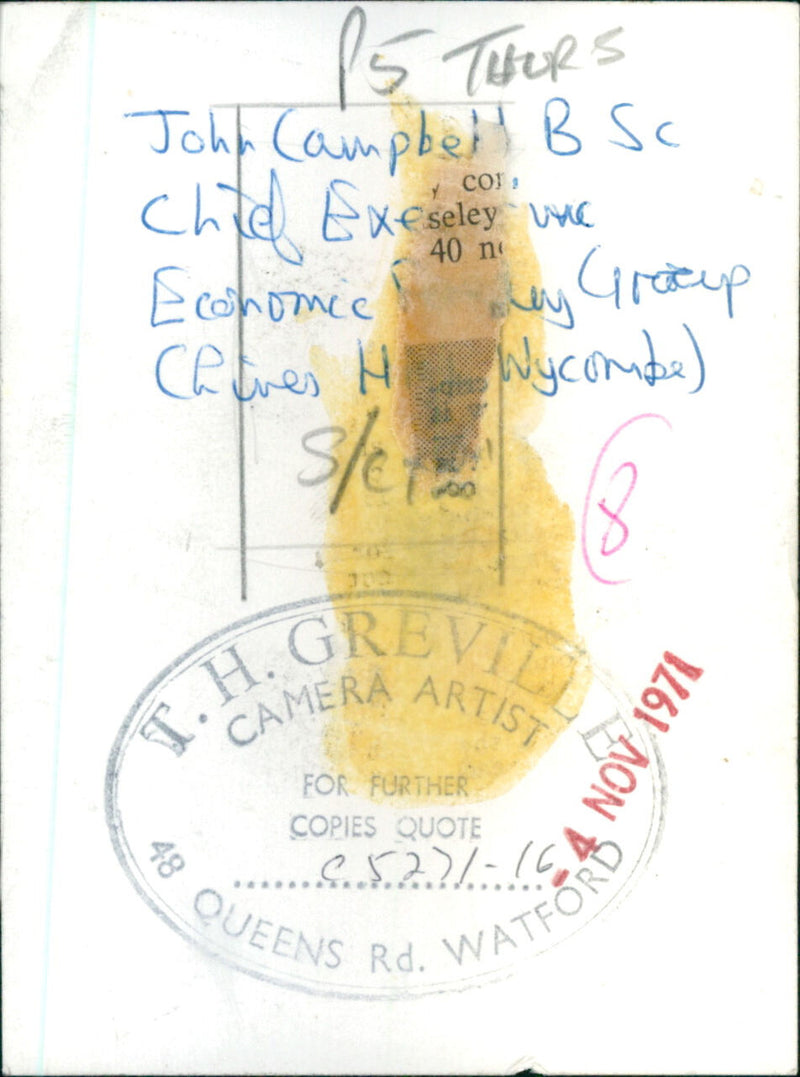 P5 THURS
John Campbell B Sc
Chief Exe
, cor
seley
40 n
Economic Group
(Chines H Wycombe)
S/C
8
T. H. GREVILLE
CAMERA ARTIST
FOR FURTHER
COPIES QUOTE
C5271-16
48 QUEENS Rd. WATFORD
-4 NOV 1971